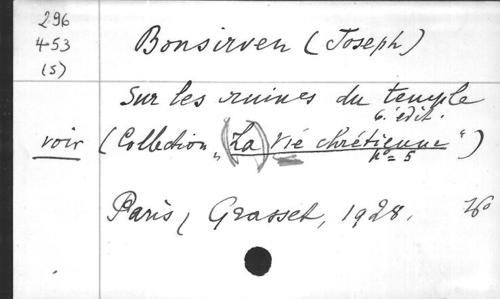 296
453
(5)
Bonsirven (Joseph)
Sur les ruines du temple
6. édit.
voir (Collection „(La) Vie chrétienne")
no = 5
Paris, Grasset, 1928.